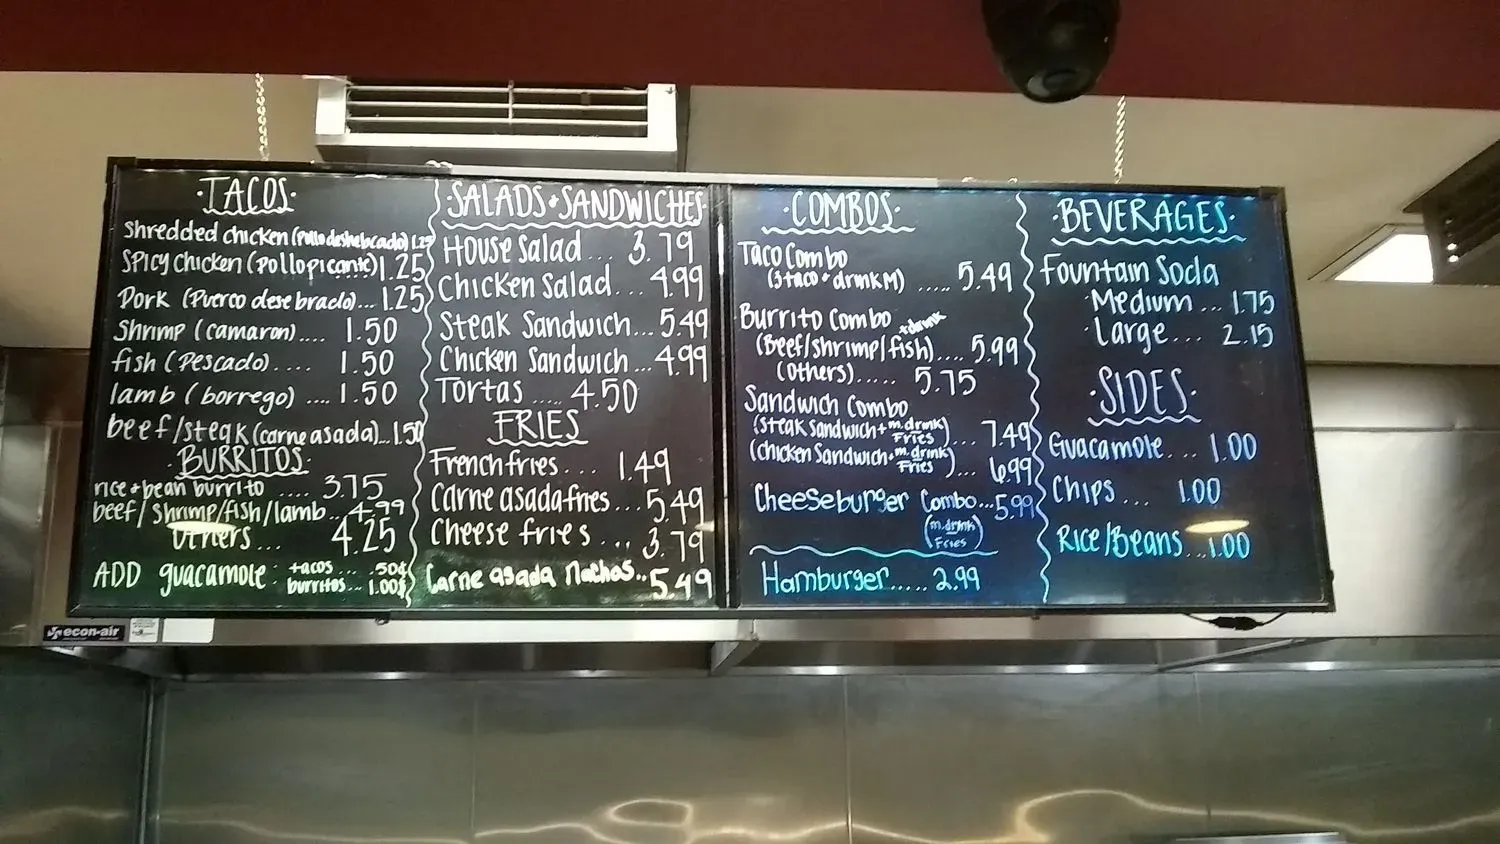 ·TACOS·
Shredded chicken (pollo deshebrado) 1.25
Spicy chicken (pollo picante) 1.25
Pork (Puerco desebrado)... 1.25
Shrimp (camaron).... 1.50
fish (Pescado).... 1.50
lamb (borrego) .... 1.50
beef/steak (carne asada)... 1.50
·BURRITOS·
rice + bean burrito .... 3.75
beef/shrimp/fish/lamb... 4.99
Others... 4.25
ADD guacamole: tacos ... .50¢
burritos... 1.00$
·SALADS + SANDWICHES·
House Salad... 3.79
Chicken Salad... 4.99
Steak Sandwich... 5.49
Chicken Sandwich... 4.99
Tortas ..... 4.50
FRIES
French fries... 1.49
Carne asada fries... 5.49
Cheese fries... 3.79
Carne asada Nachos... 5.49
·COMBOS·
Taco Combo
(3 taco + drink M) ..... 5.49
Burrito Combo + drink
(Beef/shrimp/fish).... 5.99
(Others)..... 5.75
Sandwich Combo
(Steak Sandwich + m. drink Fries)... 7.49
(chicken Sandwich + m. drink Fries)... 6.99
Cheeseburger Combo... 5.99
(m. drink
Fries)
Hamburger..... 2.99
·BEVERAGES·
Fountain Soda
·Medium... 1.75
·Large... 2.15
·SIDES·
Guacamole... 1.00
Chips... 1.00
Rice/Beans... 1.00
econ-air